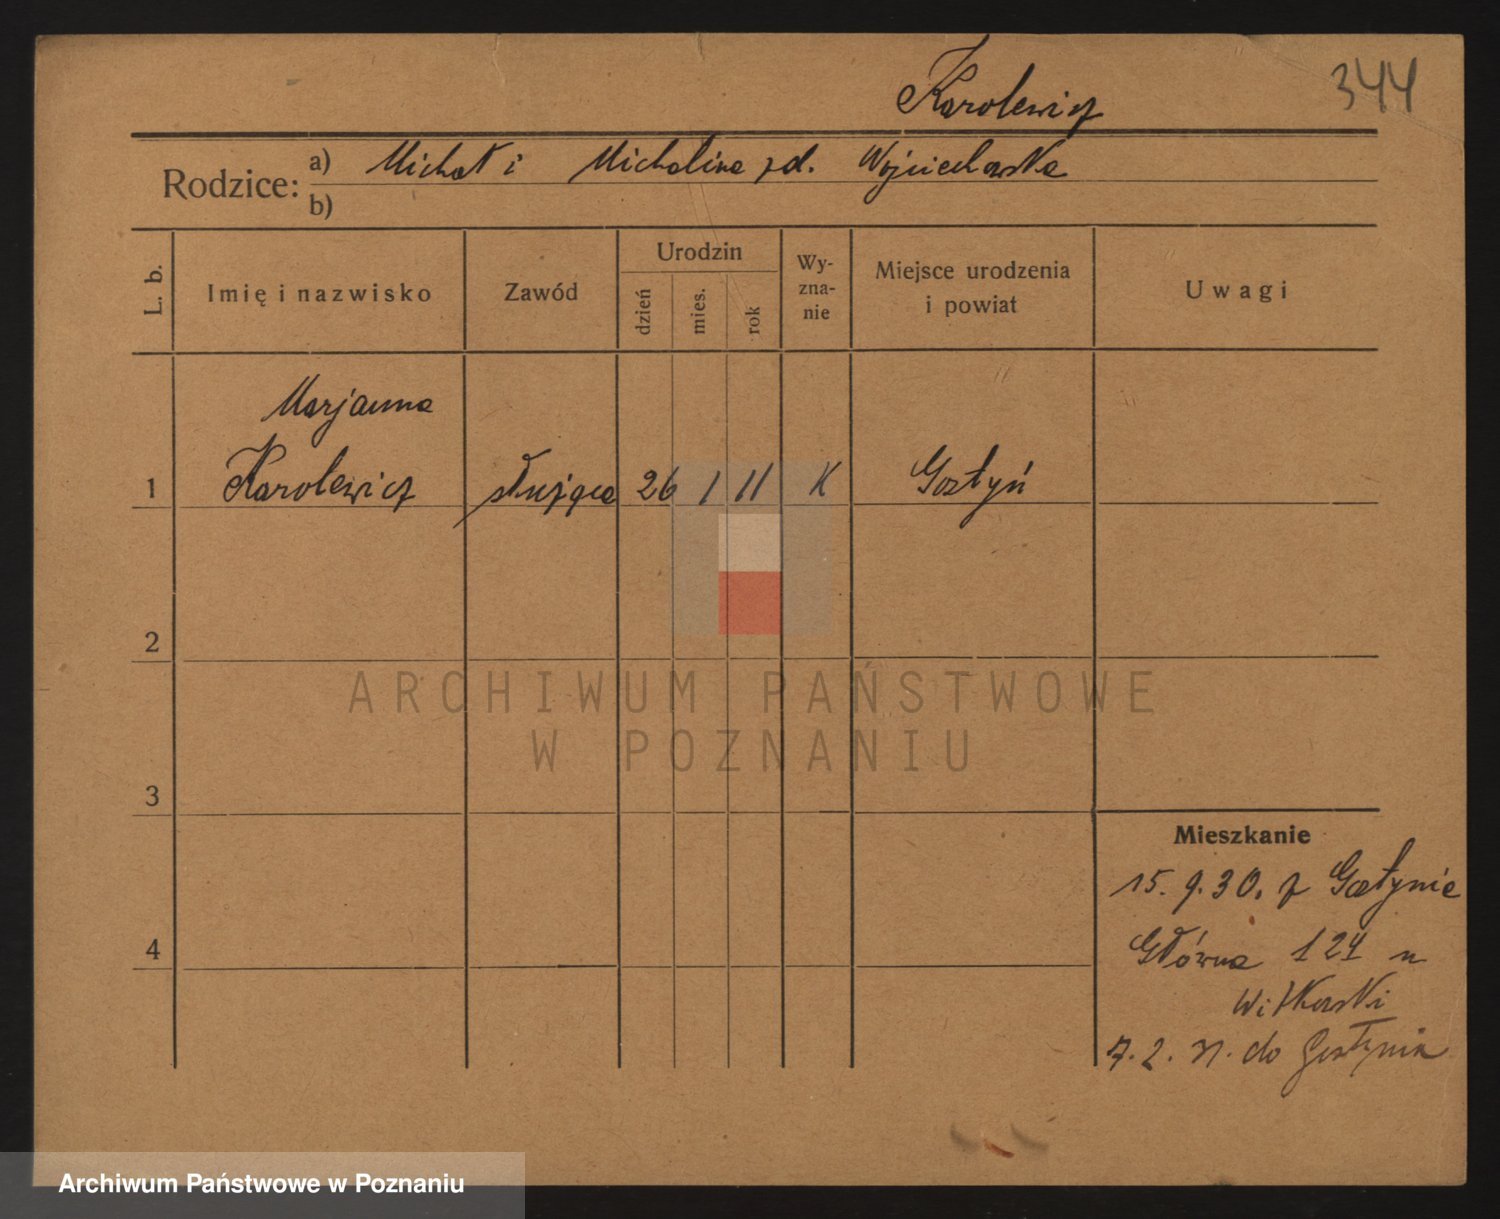 Karolewicz
344
Rodzice: a) Michał i Michalina zd. Wojciechowska
b)
L. b.
Imię i nazwisko
Zawód
Urodzin
dzień
mies.
rok
Wy-
zna-
nie
Miejsce urodzenia
i powiat
Uwagi
Marjanna
1 Karolewicz służąca 26 1 11 K Gostyń
2
3
4
Mieszkanie
15. 9. 30. z Gostynia
Główna 124 u
Witkowski
7. 2. 31. do Gostynia
ARCHIWUM PAŃSTWOWE
W POZNANIU
Archiwum Państwowe w Poznaniu